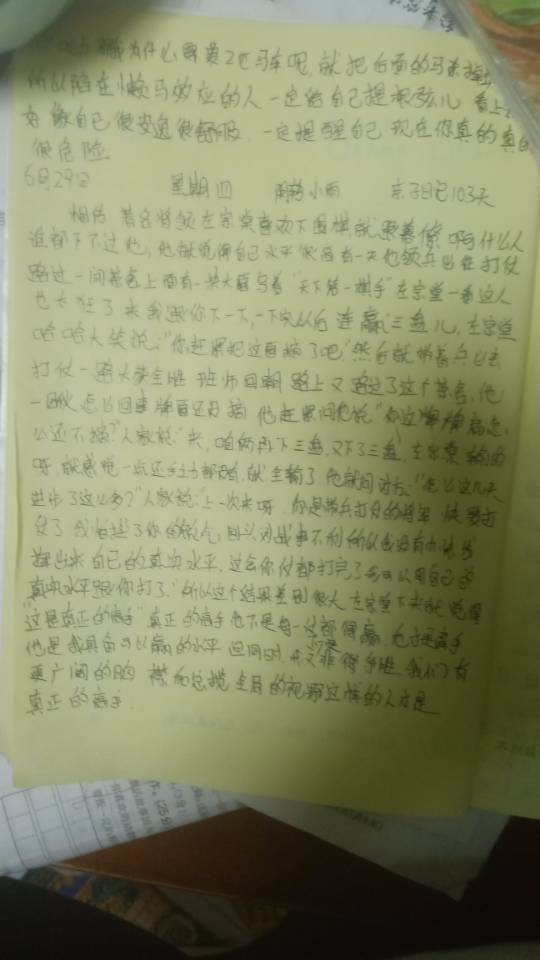 为什么要养2匹马车呢,就把后面的马杀掉
所以陷在懒马效应的人一定给自己提根弦儿 看上
好像自己很安逸很舒服,一定提醒自己 现在你真的真的
很危险
6月29日 星期四 小雨 亲子日记103天
相传 著名将领左宗棠喜欢下围棋就跟幕僚啊什么人
谁都下不过他,他就觉得自己水平很高有一天他领兵出征打仗
路过一间茶舍上面有一块大匾写着"天下第一棋手"左宗堂一看这人
也太狂了来我跟你下一下,一下完以后连赢三盘儿,左宗堂
哈哈大笑说:"你赶紧把这匾摘了吧"然后就带着兵么去
打仗一路大获全胜 班师回朝 路上又路过了这个茶舍,他
一看怎么回事牌匾还没摘 他赶紧问他说"你这牌匾怎
么还不摘?"人家说"来,咱俩再下三盘,又下了三盘,左宗棠输的
呀,就感觉一点还手力都没有,就全输了他就问对方:"怎么这几天
进步了这么多?"人家说:"上一次来呀,你是带兵打仗的将军 快要打
仗了我怕挫了你的锐气,回头对战事不利所以也没有办法发
挥出来自己的真实水平,这会你仗都打完了我可以用自己的
真实水平跟你打了,"所以这个结果差别很大 左宗堂下来就觉得
"这是真正的高手"真正的高手也不是每一盘都得赢,
他是我具备可以赢的水平 但同时
更广阔的胸襟和总揽全局的视野这样的人才是
真正的高手.